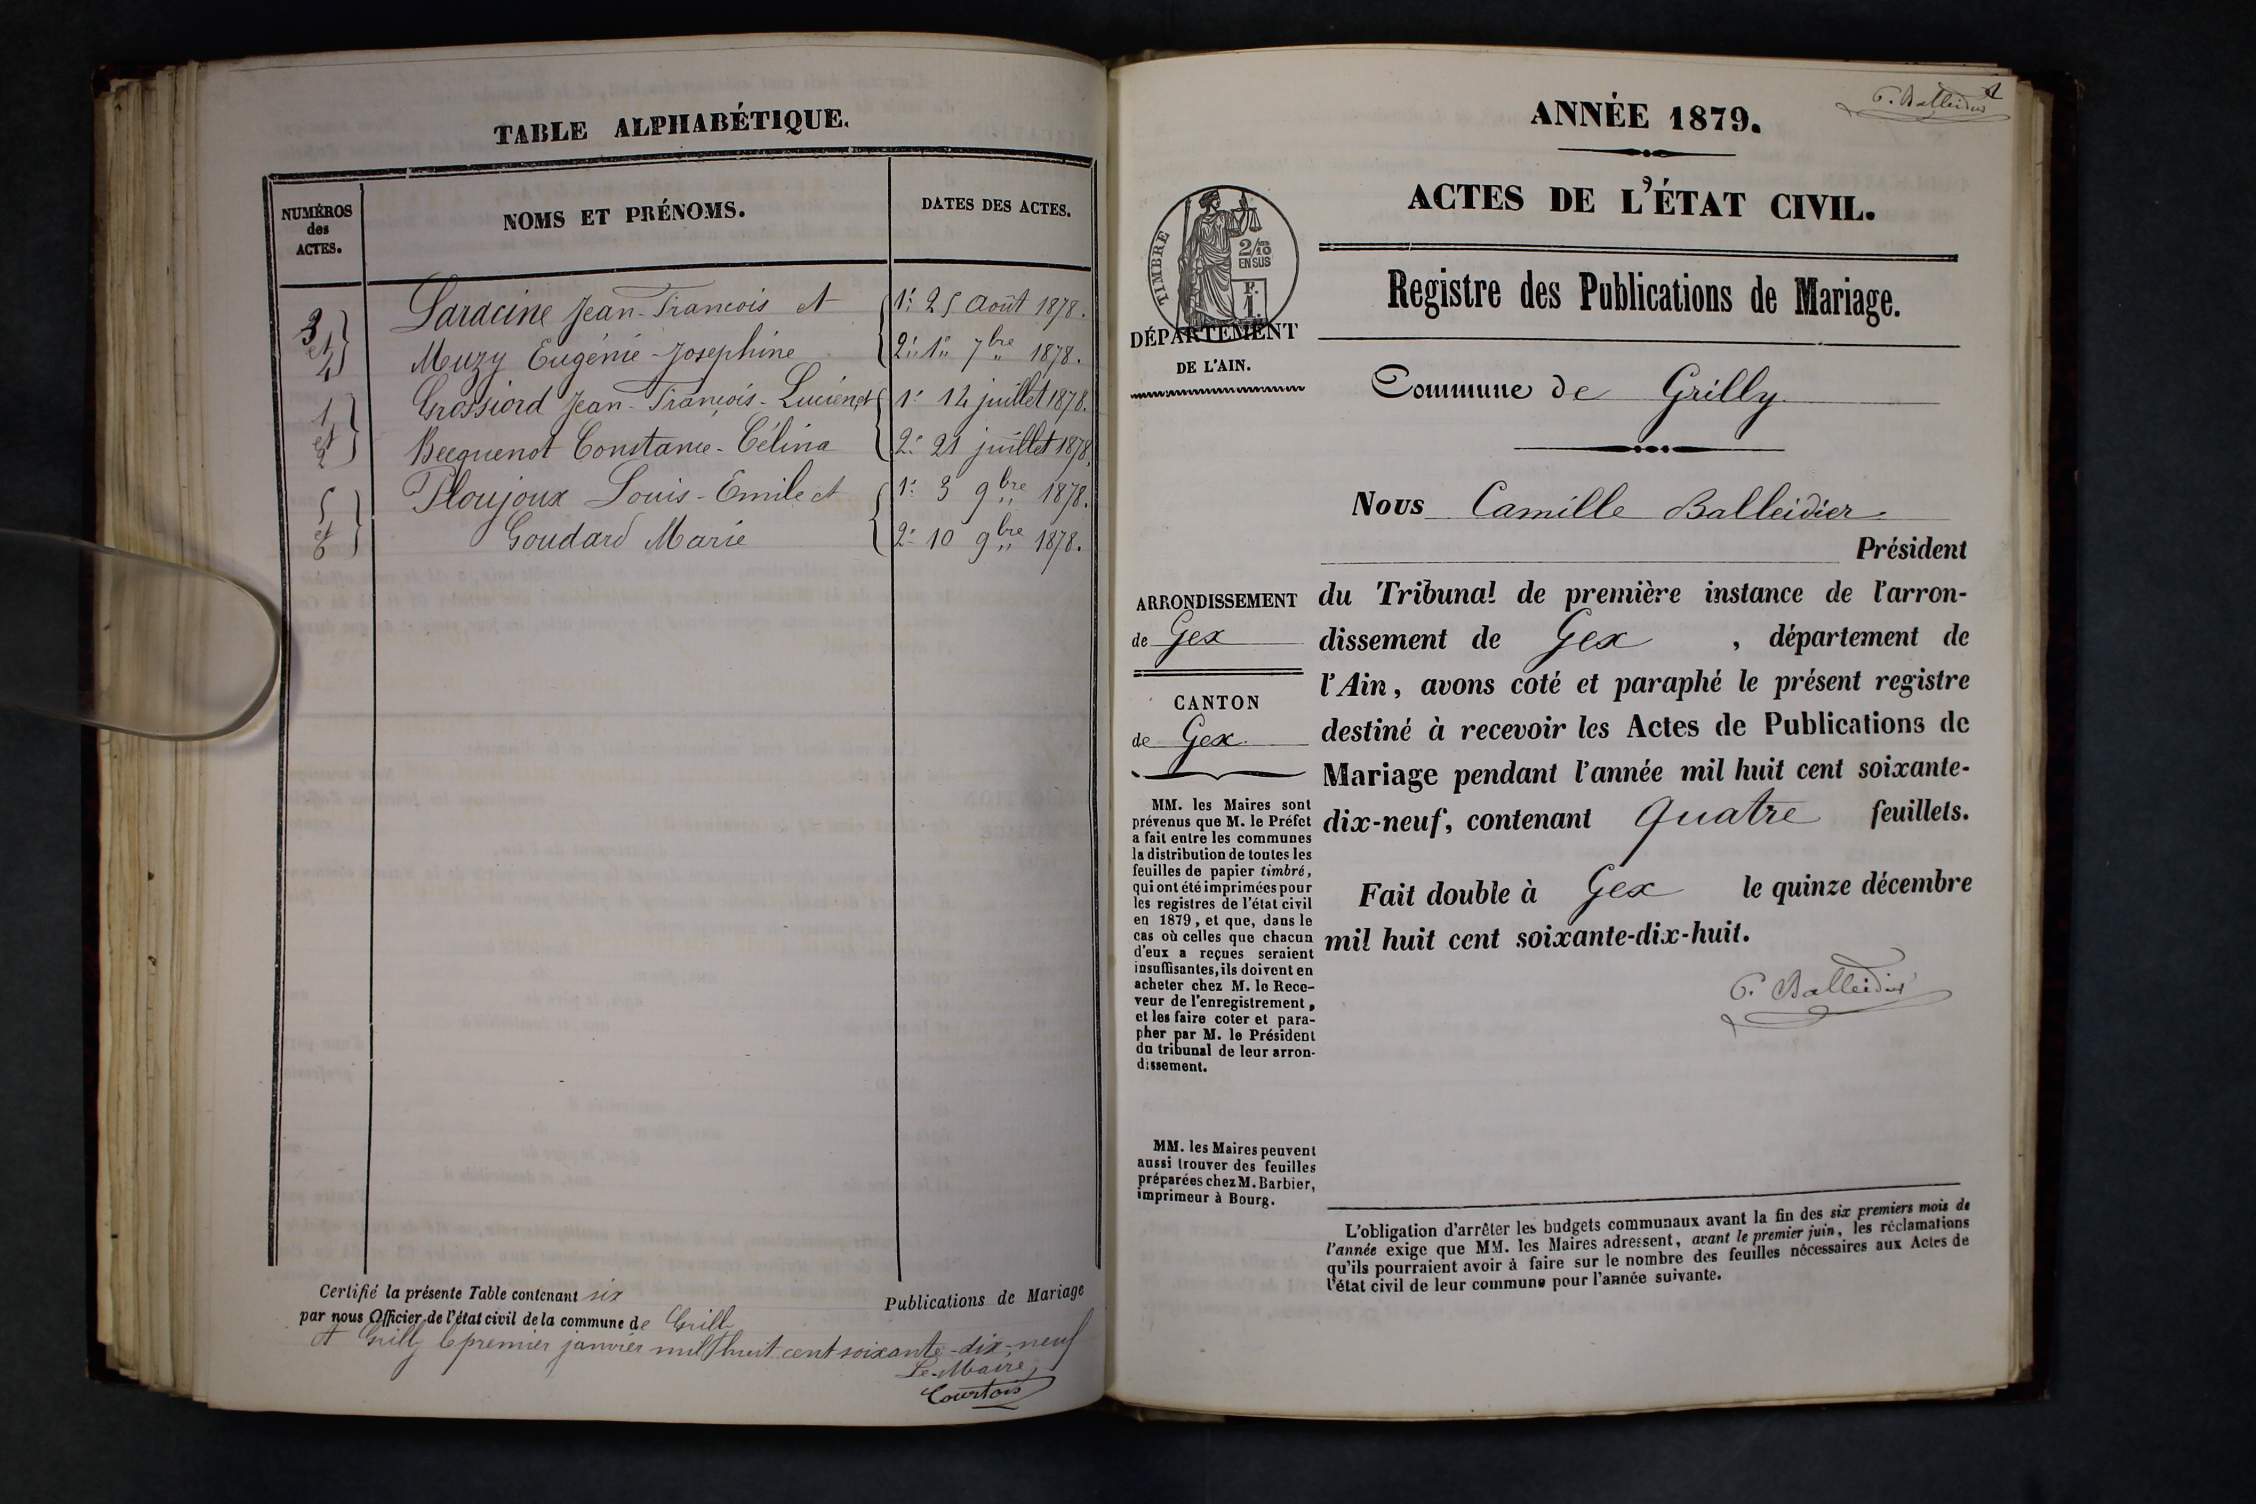 TABLE ALPHABÉTIQUE.
NUMÉROS
des
ACTES.
NOMS ET PRÉNOMS.
DATES DES ACTES.
3
et
4
Saracine Jean-François et
1: 25 Août 1878.
Muzy Eugénie-Josephine
2: 1er 7bre 1878.
1
et
2
Grossiord Jean-François-Lucien et
1: 14 juillet 1878.
Becquenot Constance-Célina
2: 21 juillet 1878.
5
et
6
Ploujoux Louis-Emile et
1: 3 9bre 1878.
Goudard Marie
2: 10 9bre 1878.
Certifié la présente Table contenant six
Publications de Mariage
par nous Officier de l'état civil de la commune de Grilly
A Grilly le premier janvier mil huit cent soixante-dix-neuf
Le Maire,
Courtois
C. Balleidier
1
ANNÉE 1879.
ACTES DE L'ÉTAT CIVIL.
TIMBRE
2/10
EN SUS
F.
1.
DÉPARTEMENT
DE L'AIN.
Registre des Publications de Mariage.
Commune de Grilly
Nous Camille Balleidier
Président
du Tribunal de première instance de l'arron-
dissement de Gex, département de
l'Ain, avons coté et paraphé le présent registre
destiné à recevoir les Actes de Publications de
Mariage pendant l'année mil huit cent soixante-
dix-neuf, contenant quatre feuillets.
Fait double à Gex le quinze décembre
mil huit cent soixante-dix-huit.
C. Balleidier
ARRONDISSEMENT
de Gex
CANTON
de Gex
MM. les Maires sont
prévenus que M. le Préfet
a fait entre les communes
la distribution de toutes les
feuilles de papier timbré,
qui ont été imprimées pour
les registres de l'état civil
en 1879, et que, dans le
cas où celles que chacun
d'eux a reçues seraient
insuffisantes, ils doivent en
acheter chez M. le Rece-
veur de l'enregistrement,
et les faire coter et para-
pher par M. le Président
du tribunal de leur arron-
dissement.
MM. les Maires peuvent
aussi trouver des feuilles
préparées chez M. Barbier,
imprimeur à Bourg.
L'obligation d'arrêter les budgets communaux avant la fin des six premiers mois de
l'année exige que MM. les Maires adressent, avant le premier juin, les réclamations
qu'ils pourraient avoir à faire sur le nombre des feuilles nécessaires aux Actes de
l'état civil de leur commune pour l'année suivante.